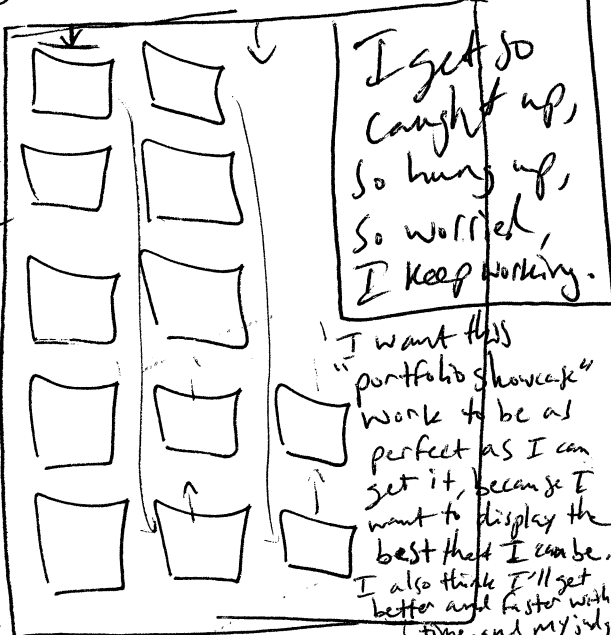 I get so
caught up,
so hung up,
so worried,
I keep working.
I want this
"portfolio showcase"
work to be as
perfect as I can
get it, because I
want to display the
best that I can be.
I also think I'll get
better and faster with
time, and my